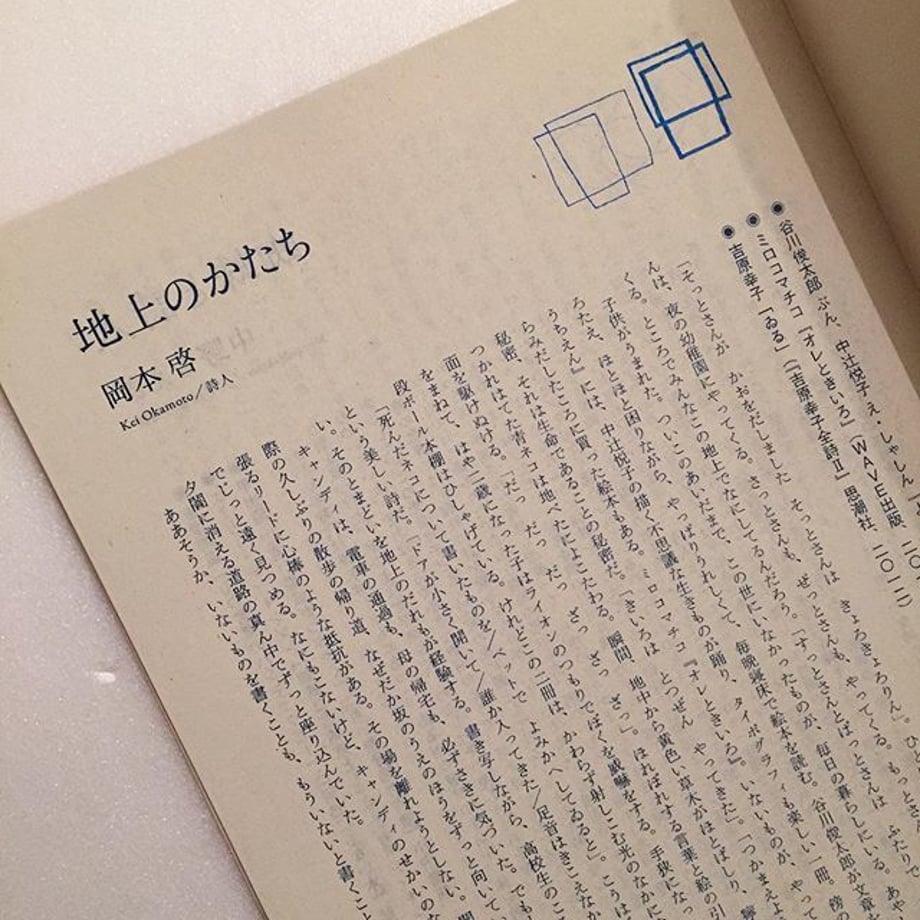 地上のかたち
岡本 啓
Kei Okamoto/詩人
谷川俊太郎 ぶん、中辻悦子 え・しゃしん
ミロコマチコ『オレときいろ』(WAVE出版、二〇
吉原幸子「ゐる」(『吉原幸子全詩Ⅱ』思潮社、二〇一二)
「そっとさんが かおをだしました そっとさんは きょろきょろりん」。ひと
んは、夜の幼稚園にやってくる。さっとさんも、ぜっとさんも、やってくる。 ふたりで
くる。ところでみんなこの地上でなにしてるんだろう。「すっとさんとぱっとさんは
子供がうまれた。ついこのあいだまで、この世にいなかったものが、毎日の暮らしにいる。あや
ろたえ、ほとほと困りながら、やっぱりうれしくて、毎晩寝床で絵本を読む。谷川俊太郎が文章
うちえん』には、中辻悦子の描く不思議な生きものが踊り、タイポグラフィも楽しい一冊。傍
らみだしたころに買った絵本もある。ミロコマチコ『オレときいろ』。いないものが、やっ
秘密、それは生命であることの秘密だ。「きいろは とつぜん やってきた」。「つかまえよ
つかれはてた青ネコは地べたによこたわる。瞬間、地中から黄色い草木がほとばしり、
面を駆けぬける。「だっ だっ だっ ざっ ざっ ざっ」。ほれぼれする言葉と絵の
をまねて、はや二歳になった子はライオンのつもりでぼくを威嚇をする。手狭になっ
段ボール本棚はひしゃげている。けれどこの二冊は、かわらず射しこむ光のなかに
「死んだネコについて書いたものを/ペットで よみかへしてゐると」。こうは
という美しい詩だ。「ドアが小さく開いて/誰か入ってきた/足音はきこえなか
い。そのとまどいを地上のだれもが経験する。書き写しながら、高校生のこ
キャンディは、電車の通過も、母の帰宅も、必ずさきに気づいた。でも
際の久しぶりの散歩の帰り道、なぜだか坂のうえのほうをずっと向いて
張るリードに心棒のような抵抗がある。その場を離れようとしない。
でじっと遠く見つめる。なにもこないけど、キャンディのせかいの
夕闇に消える道路の真ん中でずっと座り込んでいた。
ああそうか、いないものを書くことも、もういないと書くこと